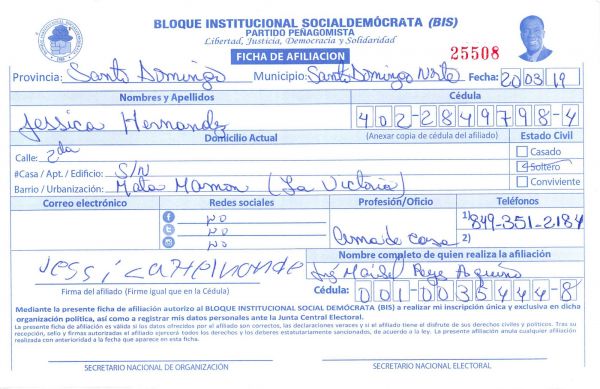 BLOQUE INSTITUCIONAL SOCIALDEMÓCRATA (BIS)
PARTIDO PEÑAGOMISTA
Libertad, Justicia, Democracia y Solidaridad
FICHA DE AFILIACION
25508
Provincia: Santo Domingo Municipio: Santo Domingo Norte Fecha: 20 03 19
Nombres y Apellidos Cédula
Jessica Hernandez 402-2849798-4
Domicilio Actual (Anexar copia de cédula del afiliado) Estado Civil
Calle: 2da
Casado
#Casa / Apt. / Edificio: S/N
Soltero
Barrio / Urbanización: Mata Mamon (La Victoria)
Conviviente
Correo electrónico Redes sociales Profesión/Oficio Teléfonos
NO
NO
NO
Ama de casa
1) 849-351-2184
2)
Nombre completo de quien realiza la afiliación
Jessica Hernande
Firma del afiliado (Firme igual que en la Cédula)
Cédula: 001-0035444-8
Mediante la presente ficha de afiliación autorizo al BLOQUE INSTITUCIONAL SOCIAL DEMÓCRATA (BIS) a realizar mi inscripción única y exclusiva en dicha
organización política, así como a registrar mis datos personales ante la Junta Central Electoral.
La presente ficha de afiliación es válida si los datos ofrecidos por el afiliado son correctos, las declaraciones veraces y si el afiliado tiene el disfrute de sus derechos civiles y políticos. Tras su
recepción, sello y firmas autorizadas el afiliado ejercerá todos los derechos y los deberes estatutariamente sancionados, de acuerdo a la ley. La presente afiliación anula cualquier afiliación
realizada con anterioridad a la fecha que aparece en esta ficha.
SECRETARIO NACIONAL DE ORGANIZACIÓN SECRETARIO NACIONAL ELECTORAL